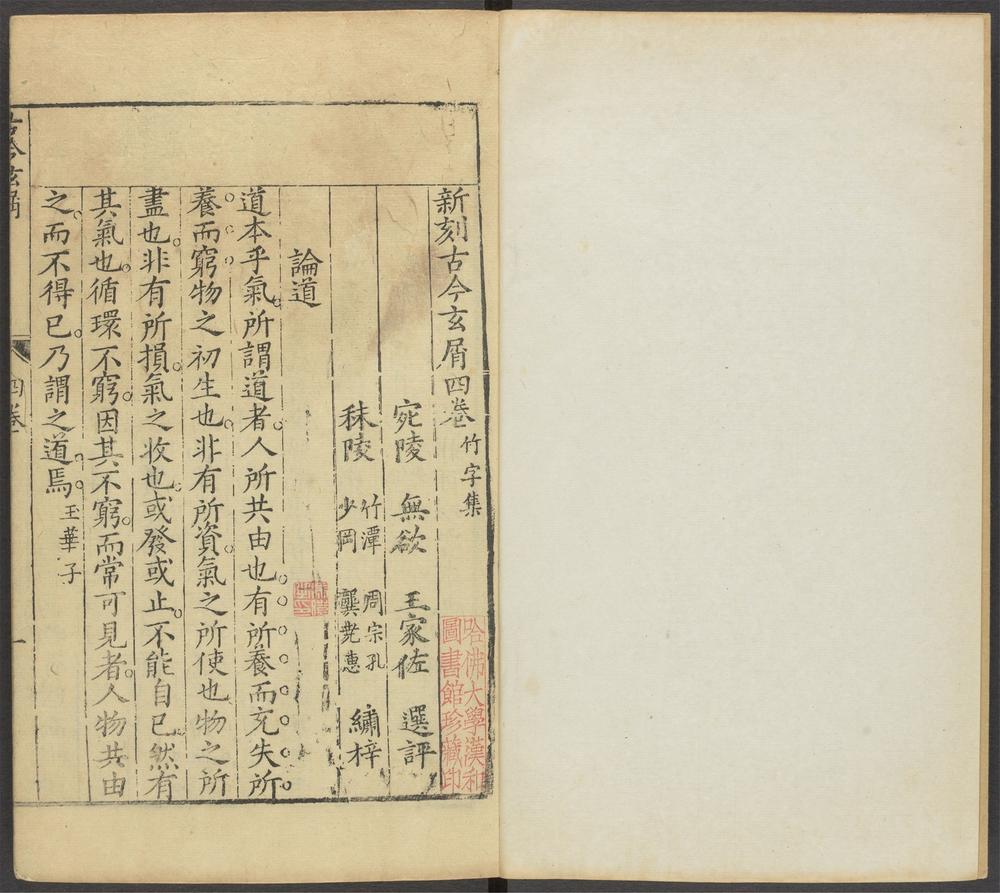 新刻古今玄屑四卷 竹字集
宛陵 無欲 王家佐 選評
秣陵 竹潭 周宗孔
少岡 龔堯惠 繡梓
論道
道本乎氣所謂道者人所共由也有所養而充失所
養而窮物之初生也非有所資氣之所使也物之所
盡也非有所損氣之收也或發或止不能自已然有
其氣也循環不窮因其不窮而常可見者人物共由
之而不得已乃謂之道焉 玉華子
古今玄屑
四卷
一
哈佛大學漢和
圖書館珍藏印